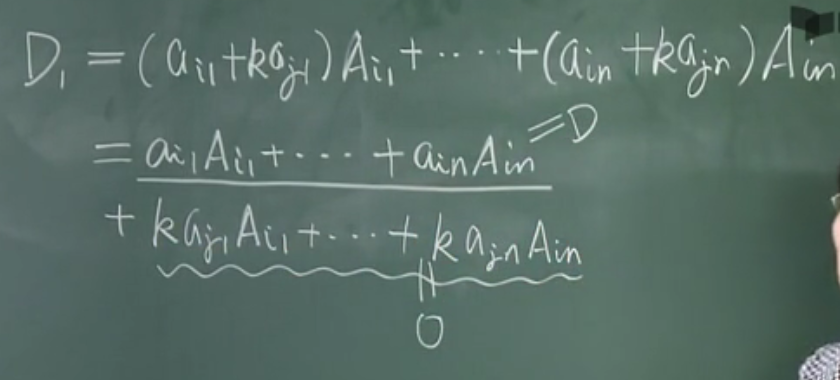 D₁ = (aᵢ₁+kaⱼ₁)Aᵢ₁+····+(aᵢₙ+kaⱼₙ)Aᵢₙ
= aᵢ₁Aᵢ₁+···+aᵢₙAᵢₙ =D
+ kaⱼ₁Aᵢ₁+···+kaⱼₙAᵢₙ
=
0